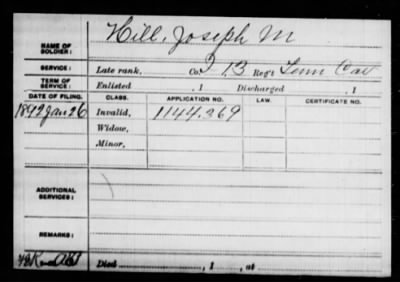 Hill, Joseph M
NAME OF SOLDIER:
SERVICE: Late rank, Co. 13 Reg't Tenn Cav
TERM OF SERVICE: Enlisted , 1 Discharged , 1
DATE OF FILING. CLASS. APPLICATION NO. LAW. CERTIFICATE NO.
1892 Jan 26 Invalid, 1144.269
Widow,
Minor,
ADDITIONAL SERVICES:
REMARKS:
Died , 1 , at